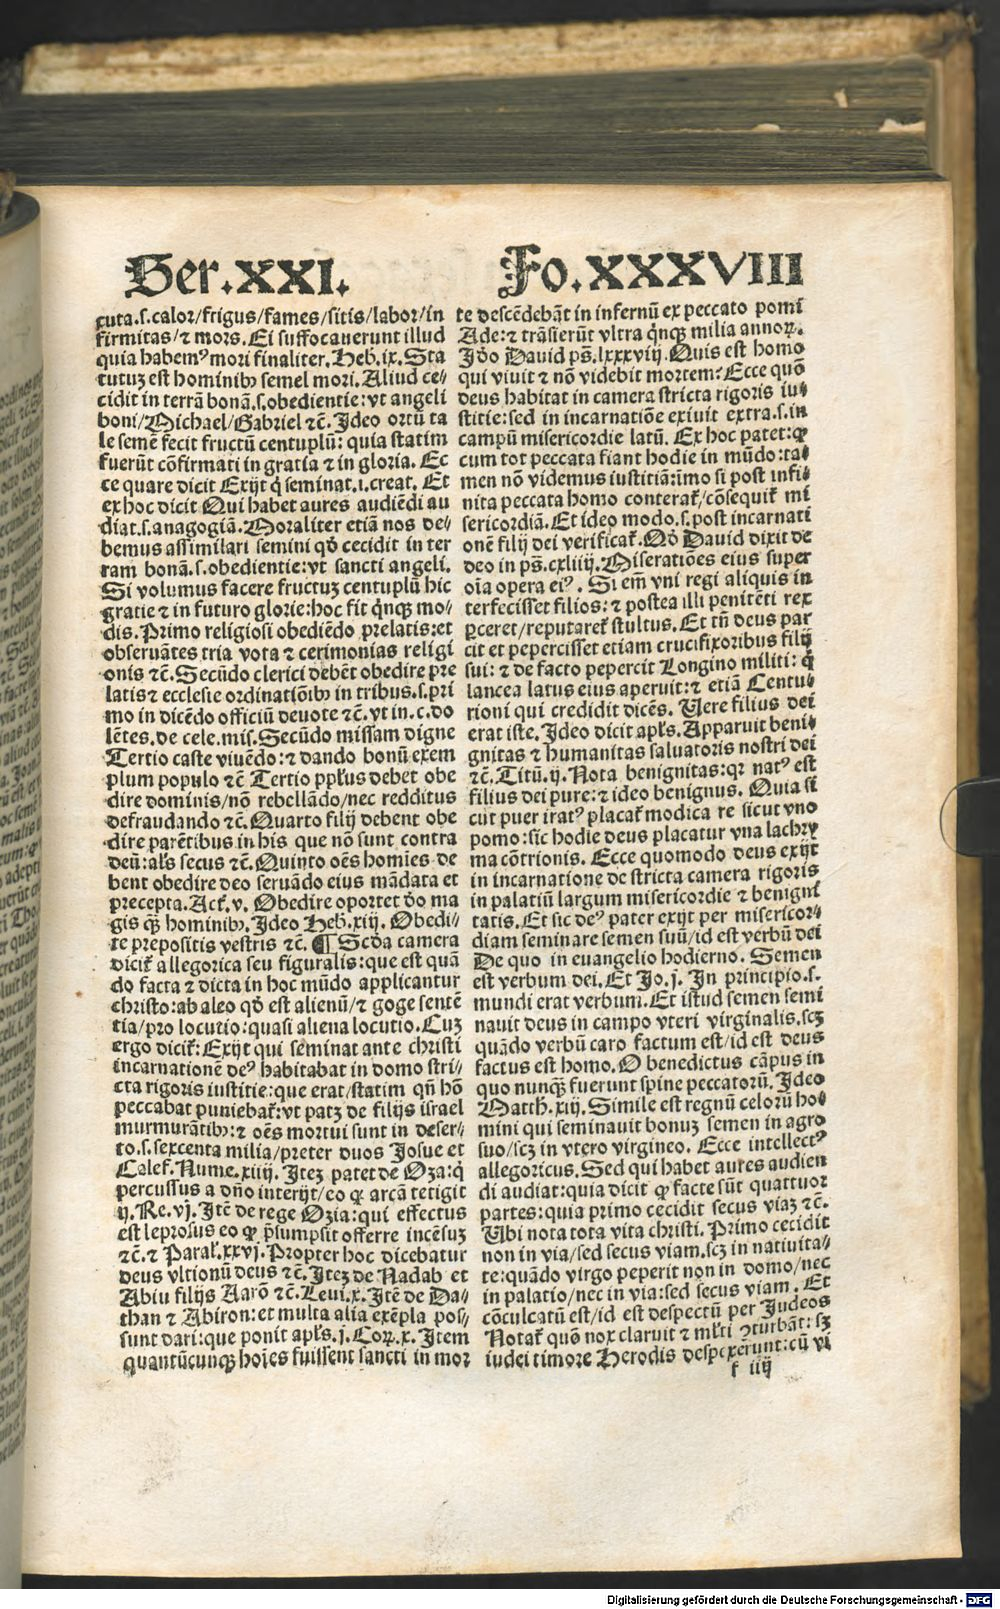 Ser.XXI.
Fo.XXXVIII
cuta.s.calor/frigus/fames/sitis/labor/in
firmitas/⁊ mors. Ei suffocauerunt illud
quia habemꝰ mori finaliter. Heb. ix. Sta
tutuz est hominibꝫ semel mori. Aliud ce⸗
cidit in terrã bonã.s.obedientie:vt angeli
boni/Michael/Gabriel ⁊c̃. Ideo ortũ ta
le semẽ fecit fructũ centuplũ: quia statim
fuerũt cõfirmati in gratia ⁊ in gloria. Ec
ce quare dicit Exijt q̇ seminat.i.creat. Et
ex hoc dicit Qui habet aures audiẽdi au
diat.s.anagogiã. Moraliter etiã nos de⸗
bemus assimilari semini qḋ cecidit in ter
ram bonã.s.obedientie: vt sancti angeli.
Si volumus facere fructuz centuplũ hic
gratie ⁊ in futuro glorie: hoc fit q̇nqꝫ mo⸗
dis. Primo religiosi obediẽdo prelatis: et
obseruãtes tria vota ⁊ cerimonias religi
onis ⁊c̃. Secũdo clerici debẽt obedire pre
latis ⁊ ecclesie ordinatiõibꝫ in tribus.s.pri
mo in dicẽdo officiũ deuote ⁊c̃. vt in.c.do
lẽtes. de cele.mis. Secũdo missam digne
Tertio caste viuẽdo: ⁊ dando bonũ exem
plum populo ⁊c̃ Tertio pp̃lus debet obe
dire dominis/nõ rebellãdo/nec redditus
defraudando ⁊c̃. Quarto filij debent obe
dire parẽtibus in his que nõ sunt contra
deũ: al̃s secus ⁊c̃. Quinto oẽs homies de
bent obedire deo seruãdo eius mãdata et
precepta. Act̃. v. Obedire oportet ḋo ma
gis q̃ꝫ hominibꝫ. Ideo Heb. xiij. Obedi⸗
te prepositis vestris ⁊c̃. ¶ Scḋa camera
dicit̃ allegorica seu figuralis: que est quã
do facta ⁊ dicta in hoc mũdo applicantur
christo: ab aleo qḋ est alienũ/⁊ goge sentẽ
tia/pro locutio: quasi aliena locutio. Cuz
ergo dicit̃: Exijt qui seminat ante christi
incarnationẽ deꝰ habitabat in domo stri⸗
cta rigoris iustitie: que erat/statim qñ hõ
peccabat puniebat̃: vt patz de filijs israel
murmurãtibꝫ: ⁊ oẽs mortui sunt in deser⸗
to.s.sexcenta milia/preter duos Josue et
Calef. Nume. xiiij. Itez patet de Oza: q̇
percussus a dño interijt/eo ꝙ arcã tetigit
ij. Re. vj. Itẽ de rege Ozia: qui effectus
est leprosus eo ꝙ p̃sumpsit offerre incẽsuz
⁊c̃. ⁊ Paral̃. xxvj. Propter hoc dicebatur
deus vltionũ deus ⁊c̃. Itez de Nadab et
Abiu filijs Aarõ ⁊c̃. Leui. x. Itẽ de Da⸗
than ⁊ Abiron: et multa alia exẽpla pos⸗
sunt dari: que ponit apl̃s. j. Coꝝ. x. Item
quantũcunqꝫ hoĩes fuissent sancti in mor
te descẽdebãt in infernũ ex peccato pomi
Ade: ⁊ trãsierũt vltra q̇nqꝫ milia annoꝝ.
Jḋo Dauid ps̃. lxxxviij. Quis est homo
qui viuit ⁊ nõ videbit mortem? Ecce quõ
deus habitat in camera stricta rigoris iu⸗
stitie: sed in incarnatiõe exiuit extra.s.in
campũ misericordie latũ. Ex hoc patet: ꝙ
cum tot peccata fiant hodie in mũdo: ta⸗
men nõ videmus iustitiã: imo si post infi⸗
nita peccata homo conterat̃/cõsequit̃ mi
sericordiã. Et ideo modo.s.post incarnati
onẽ filij dei verificat̃. Qḋ Dauid dixit de
deo in ps̃. cxliiij. Miseratiões eius super
oĩa opera eiꝰ. Si em̃ vni regi aliquis in
terfecisset filios: ⁊ postea illi penitẽti rex
ꝑceret/reputaret̃ stultus. Et tñ deus par
cit et pepercisset etiam crucifixoribus filij
sui: ⁊ de facto pepercit Longino militi: q̇
lancea latus eius aperuit: ⁊ etiã Centu⸗
rioni qui credidit dicẽs. Vere filius dei
erat iste. Ideo dicit apl̃s. Apparuit beni⸗
gnitas ⁊ humanitas saluatoris nostri dei
⁊c̃. Titũ. ij. Nota benignitas: qꝛ natꝰ est
filius dei pure: ⁊ ideo benignus. Quia si
cut puer iratꝰ placat̃ modica re sicut vno
pomo: sic hodie deus placatur vna lachry
ma cõtrionis. Ecce quomodo deus exijt
in incarnatione de stricta camera rigoris
in palatiũ largum misericordie ⁊ benigni
tatis. Et sic deꝰ pater exijt per misericor⸗
diam seminare semen suũ/id est verbũ dei
De quo in euangelio hodierno. Semen
est verbum dei. Et Jo. j. In principio.s.
mundi erat verbum. Et istud semen semi
nauit deus in campo vteri virginalis.scz
quãdo verbũ caro factum est/id est deus
factus est homo. O benedictus cãpus in
quo nunqꝫ fuerunt spine peccatorũ. Ideo
Matth. xiij. Simile est regnũ celorũ ho⸗
mini qui seminauit bonuz semen in agro
suo/scz in vtero virgineo. Ecce intellectꝰ
allegoricus. Sed qui habet aures audien
di audiat: quia dicit ꝙ facte sũt quattuor
partes: quia primo cecidit secus viaz ⁊c̃.
Ubi nota tota vita christi. Primo cecidit
non in via/sed secus viam.scz in natiuita⸗
te: quãdo virgo peperit non in domo/nec
in palatio/nec in via: sed secus viam. Et
cõculcatũ est/id est despectũ per Judeos
Notat̃ quõ nox claruit ⁊ ml̃ti ꝯturbãt: sz
iudei timore Herodis despexerunt: cũ vi
f iiij
Digitalisierung gefördert durch die Deutsche Forschungsgemeinschaft - DFG